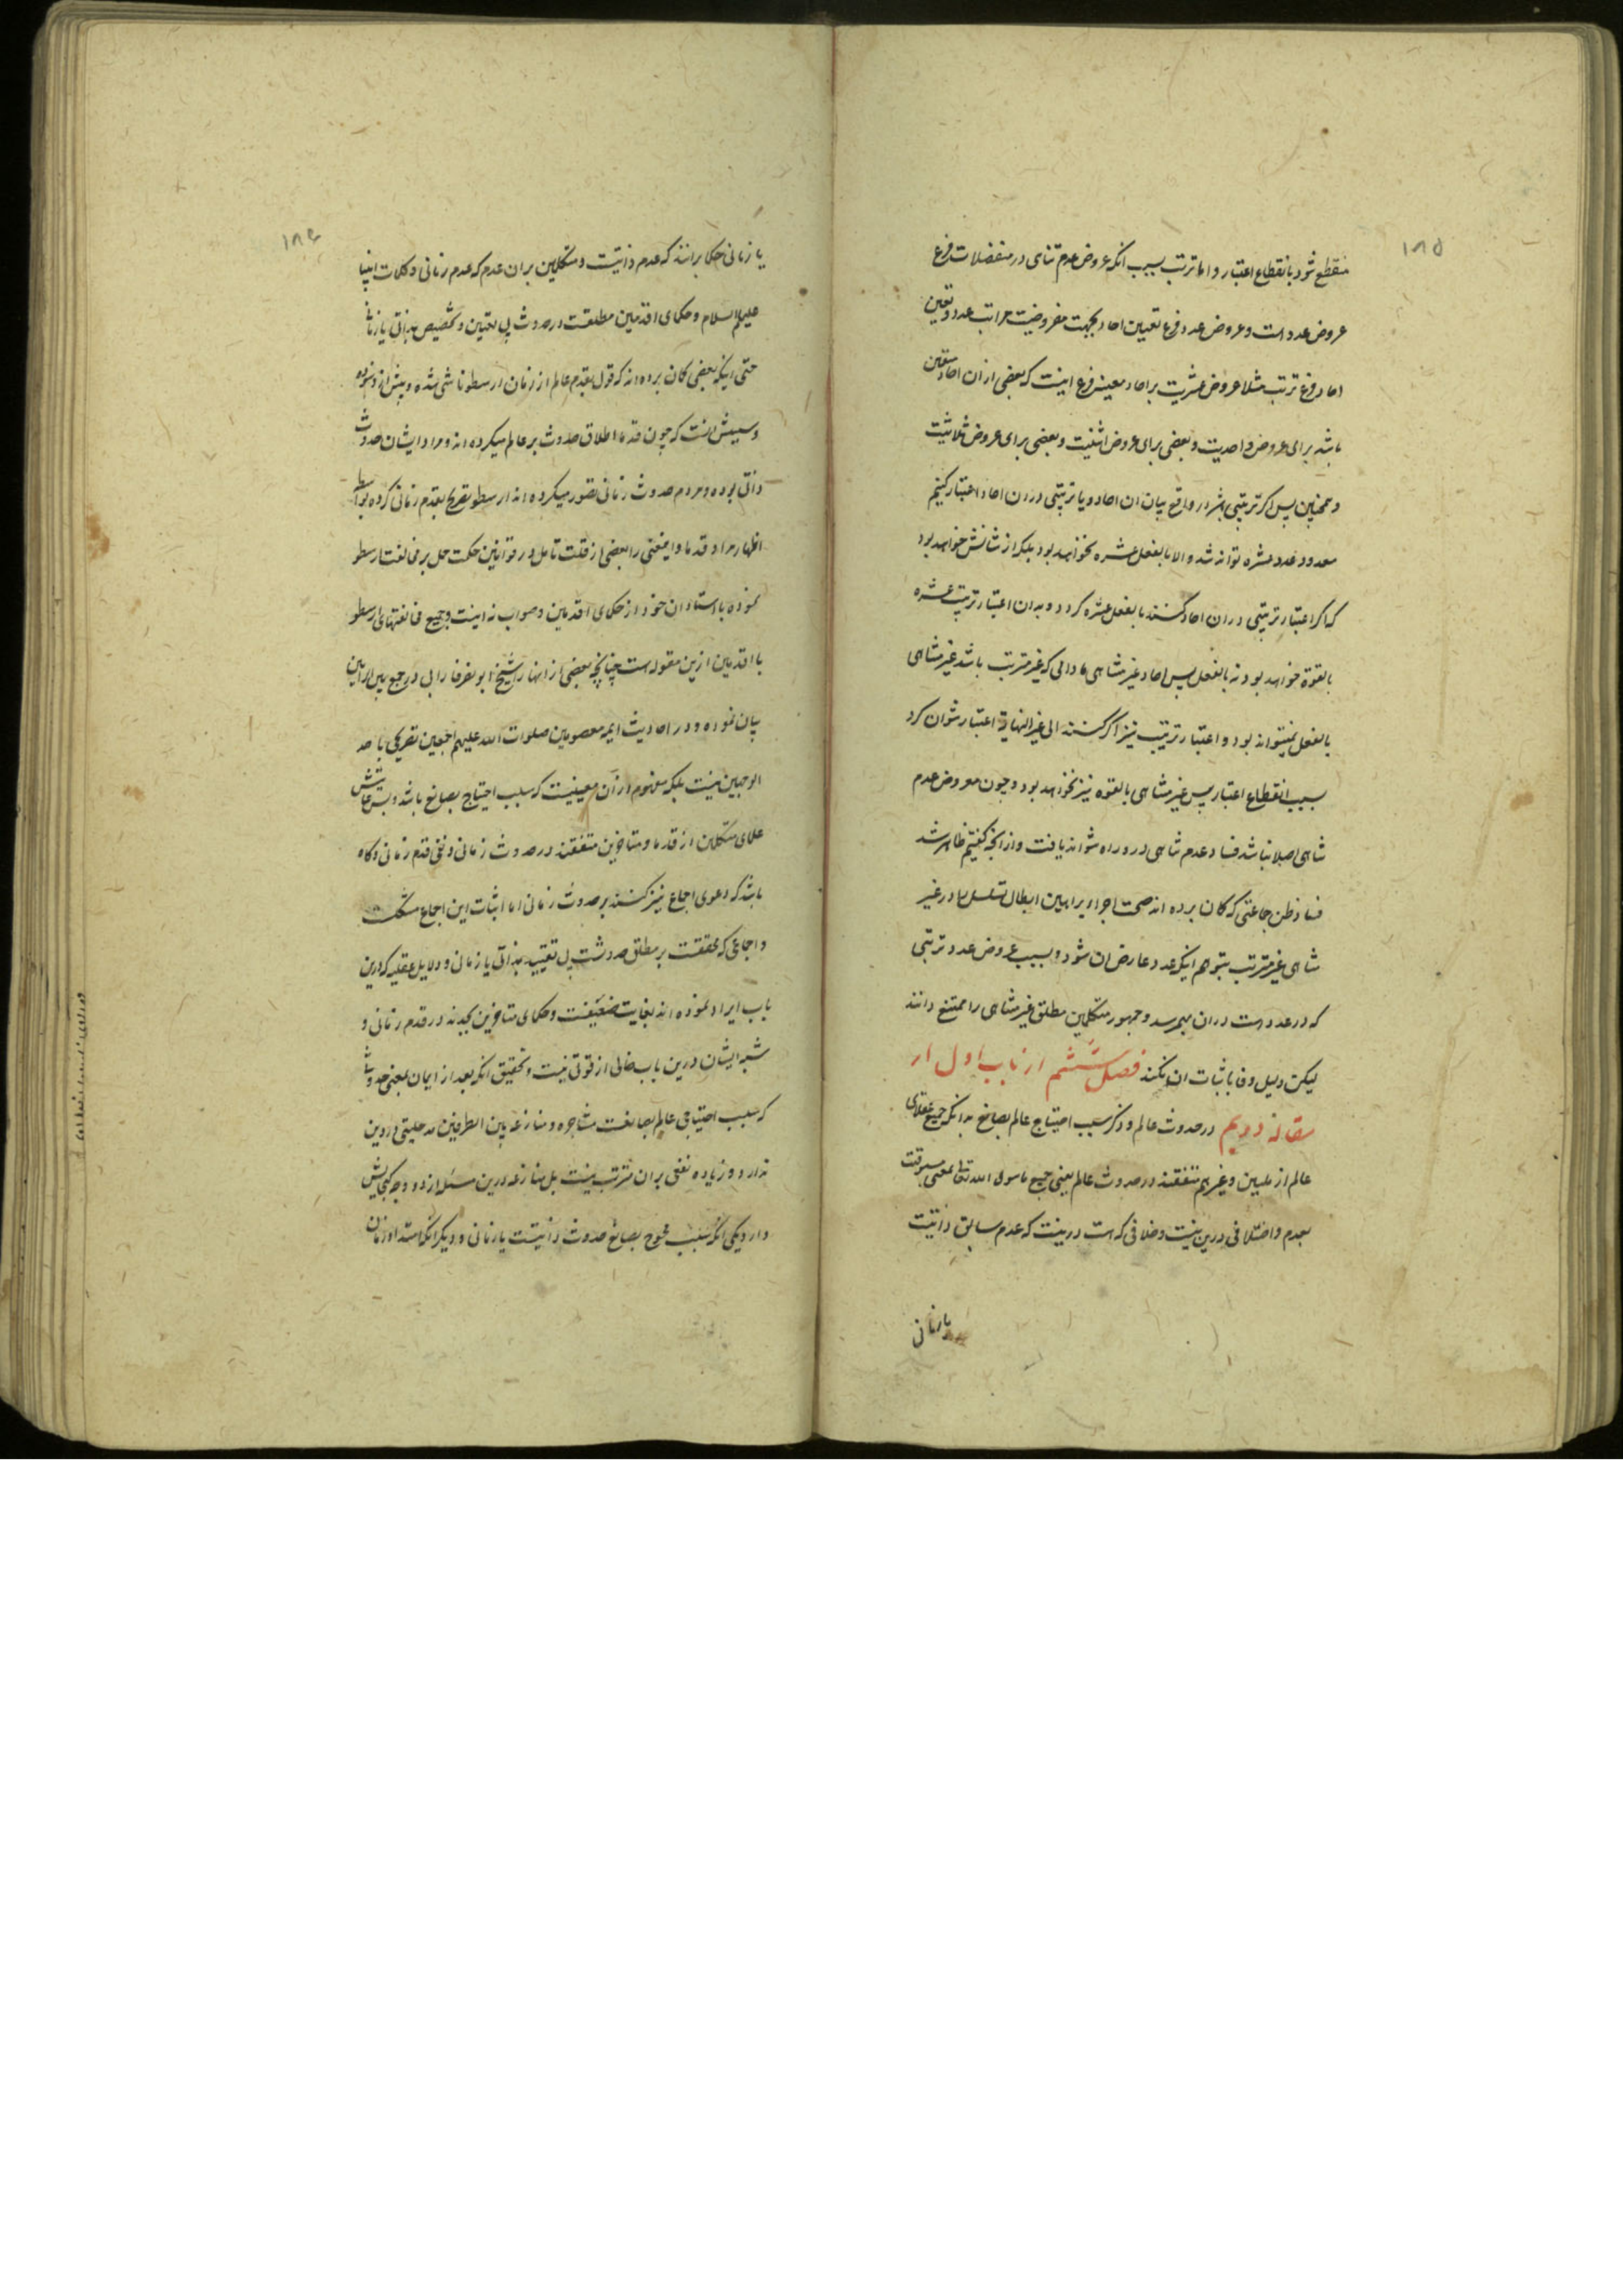 ۱۸۵
منقطع شود بانقطاع اعتبار و اما ترتب بسبب انکه عروض عدم تناهی در منفصلات فرع
عروض عدد است و عروض عدد فرع تعیین احاد بجهت معروضیت مراتب عدد و تعین
احاد فرع ترتب مثلا عروض عشریت بر احاد معینه فرع اینست که بعضی از ان احاد متعین
باشد برای عروض واحدیت و بعضی برای عروض اثنینیت و بعضی برای عروض ثلاثیت
و همچنین پس اکر ترتیبی باشد در واقع میان ان احاد و یا ترتیبی در ان احاد اعتبار کنیم
معدود عدد عشره تواند شد و الا بالفعل عشره نخواهد بود بلکه از شانش خواهد بود
که اکر اعتبار ترتیبی در ان احاد کنند بالفعل عشره کردد و بدون اعتبار ترتیب عشره
بالقوة خواهد بود نه بالفعل پس احاد غیر متناهی مادامی که غیر مترتب باشد غیر متناهی
بالفعل نمیتواند بود و اعتبار ترتیب نیز اکر کنند الی غیر النهایة اعتبار نتوان کرد
بسبب انقطاع اعتبار پس غیر متناهی بالقوه نیز نخواهد بود و چون معروض عدم
تناهی اصلا نباشد فساد عدم تناهی در و راه نتواند یافت و از انچه کفتیم ظاهر شد
فساد ظن جماعتی که کمان برده اند صحت اجراء براهین ابطال تسلسل را در غیر
متناهی غیر مترتب بتوهم اینکه عدد عارض ان شود و بسبب عروض عدد ترتبی
که در عدد است در ان بهم رسد و جمهور متکلمین مطلق غیر متناهی را ممتنع دانند
لیکن دلیل وفا باثبات ان نکند فصل ششم از باب اول از
مقاله دویم در حدوث عالم و ذکر سبب احتیاج عالم بصانع بدانکه جمیع عقلای
عالم از ملیین و غیرهم متفقند در حدوث عالم یعنی جمیع ماسوی الله تعالی بمعنی مسبوقیت
بعدم و اختلافی درین نیست و خلافی که هست درینست که عدم سابق ذاتیست
یا زمانی
۱۸۶
یا زمانی حکما برانند که عدم ذاتیست و متکلمین بران عدم که عدم زمانی و کلمات انبیا
علیهم السلام و حکمای اقدمین مطلقست در حدوث بی تعیین و تخصیص بذاتی یا زمانی
حتی اینکه بعضی کمان برده اند که قول بقدم عالم از زمان ارسطو ناشی شده و پیش از و نبوده
و سببش انست که چون قدما اطلاق حدوث بر عالم میکرده اند و مراد ایشان حدوث
ذاتی بوده و مردم حدوث زمانی تصور میکرده اند ارسطو تصریح بقدم زمانی کرده بواسطه
اظهار مراد قدما و اینمعنی را بعضی از قلت تامل در قوانین حکمت حمل بر مخالفت ارسطو
نموده با استادان خود از حکمای اقدمین و صواب نه اینست و جمیع مخالفتهای ارسطو
با اقدمین ازین مقوله است چنانچه بعضی از انها را شیخ ابو نصر فارابی در جمع بین الرایین
بیان نموده و در احادیث ایمه معصومین صلوات الله علیهم اجمعین تصریحی باحد
الوجهین نیست بلکه مفهوم از آن معنییست که سبب احتیاج بصانع باشد و بس غایتش
علمای متکلمین از قدما و متاخرین متفقند در حدوث زمانی و نفی قدم زمانی و کاه
باشد که دعوی اجماع نیز کنند بر حدوث زمانی اما اثبات این اجماع مشکلست
و اجماعی که محققست بر مطلق حدوثست بی تقیید بذاتی یا زمانی و دلایل عقلیه که درین
باب ایراد نموده اند بغایت ضعیفست و حکمای متاخرین بجدند در قدم زمانی و
شبه ایشان درین باب خالی از قوتی نیست و تحقیق انکه بعد از ایمان بمعنی حدوث
که سبب احتیاجی عالم بصانعست مشاجره و منازعه بین الطرفین مدخلیتی در دین
ندارد و زیاده نفعی بران مترتب نیست بل منازعه درین مسئله از دو وجه کنجایش
دارد یکی انکه سبب محوج بصانع حدوث ذاتیست یا زمانی و دیکر انکه امتداد زمان